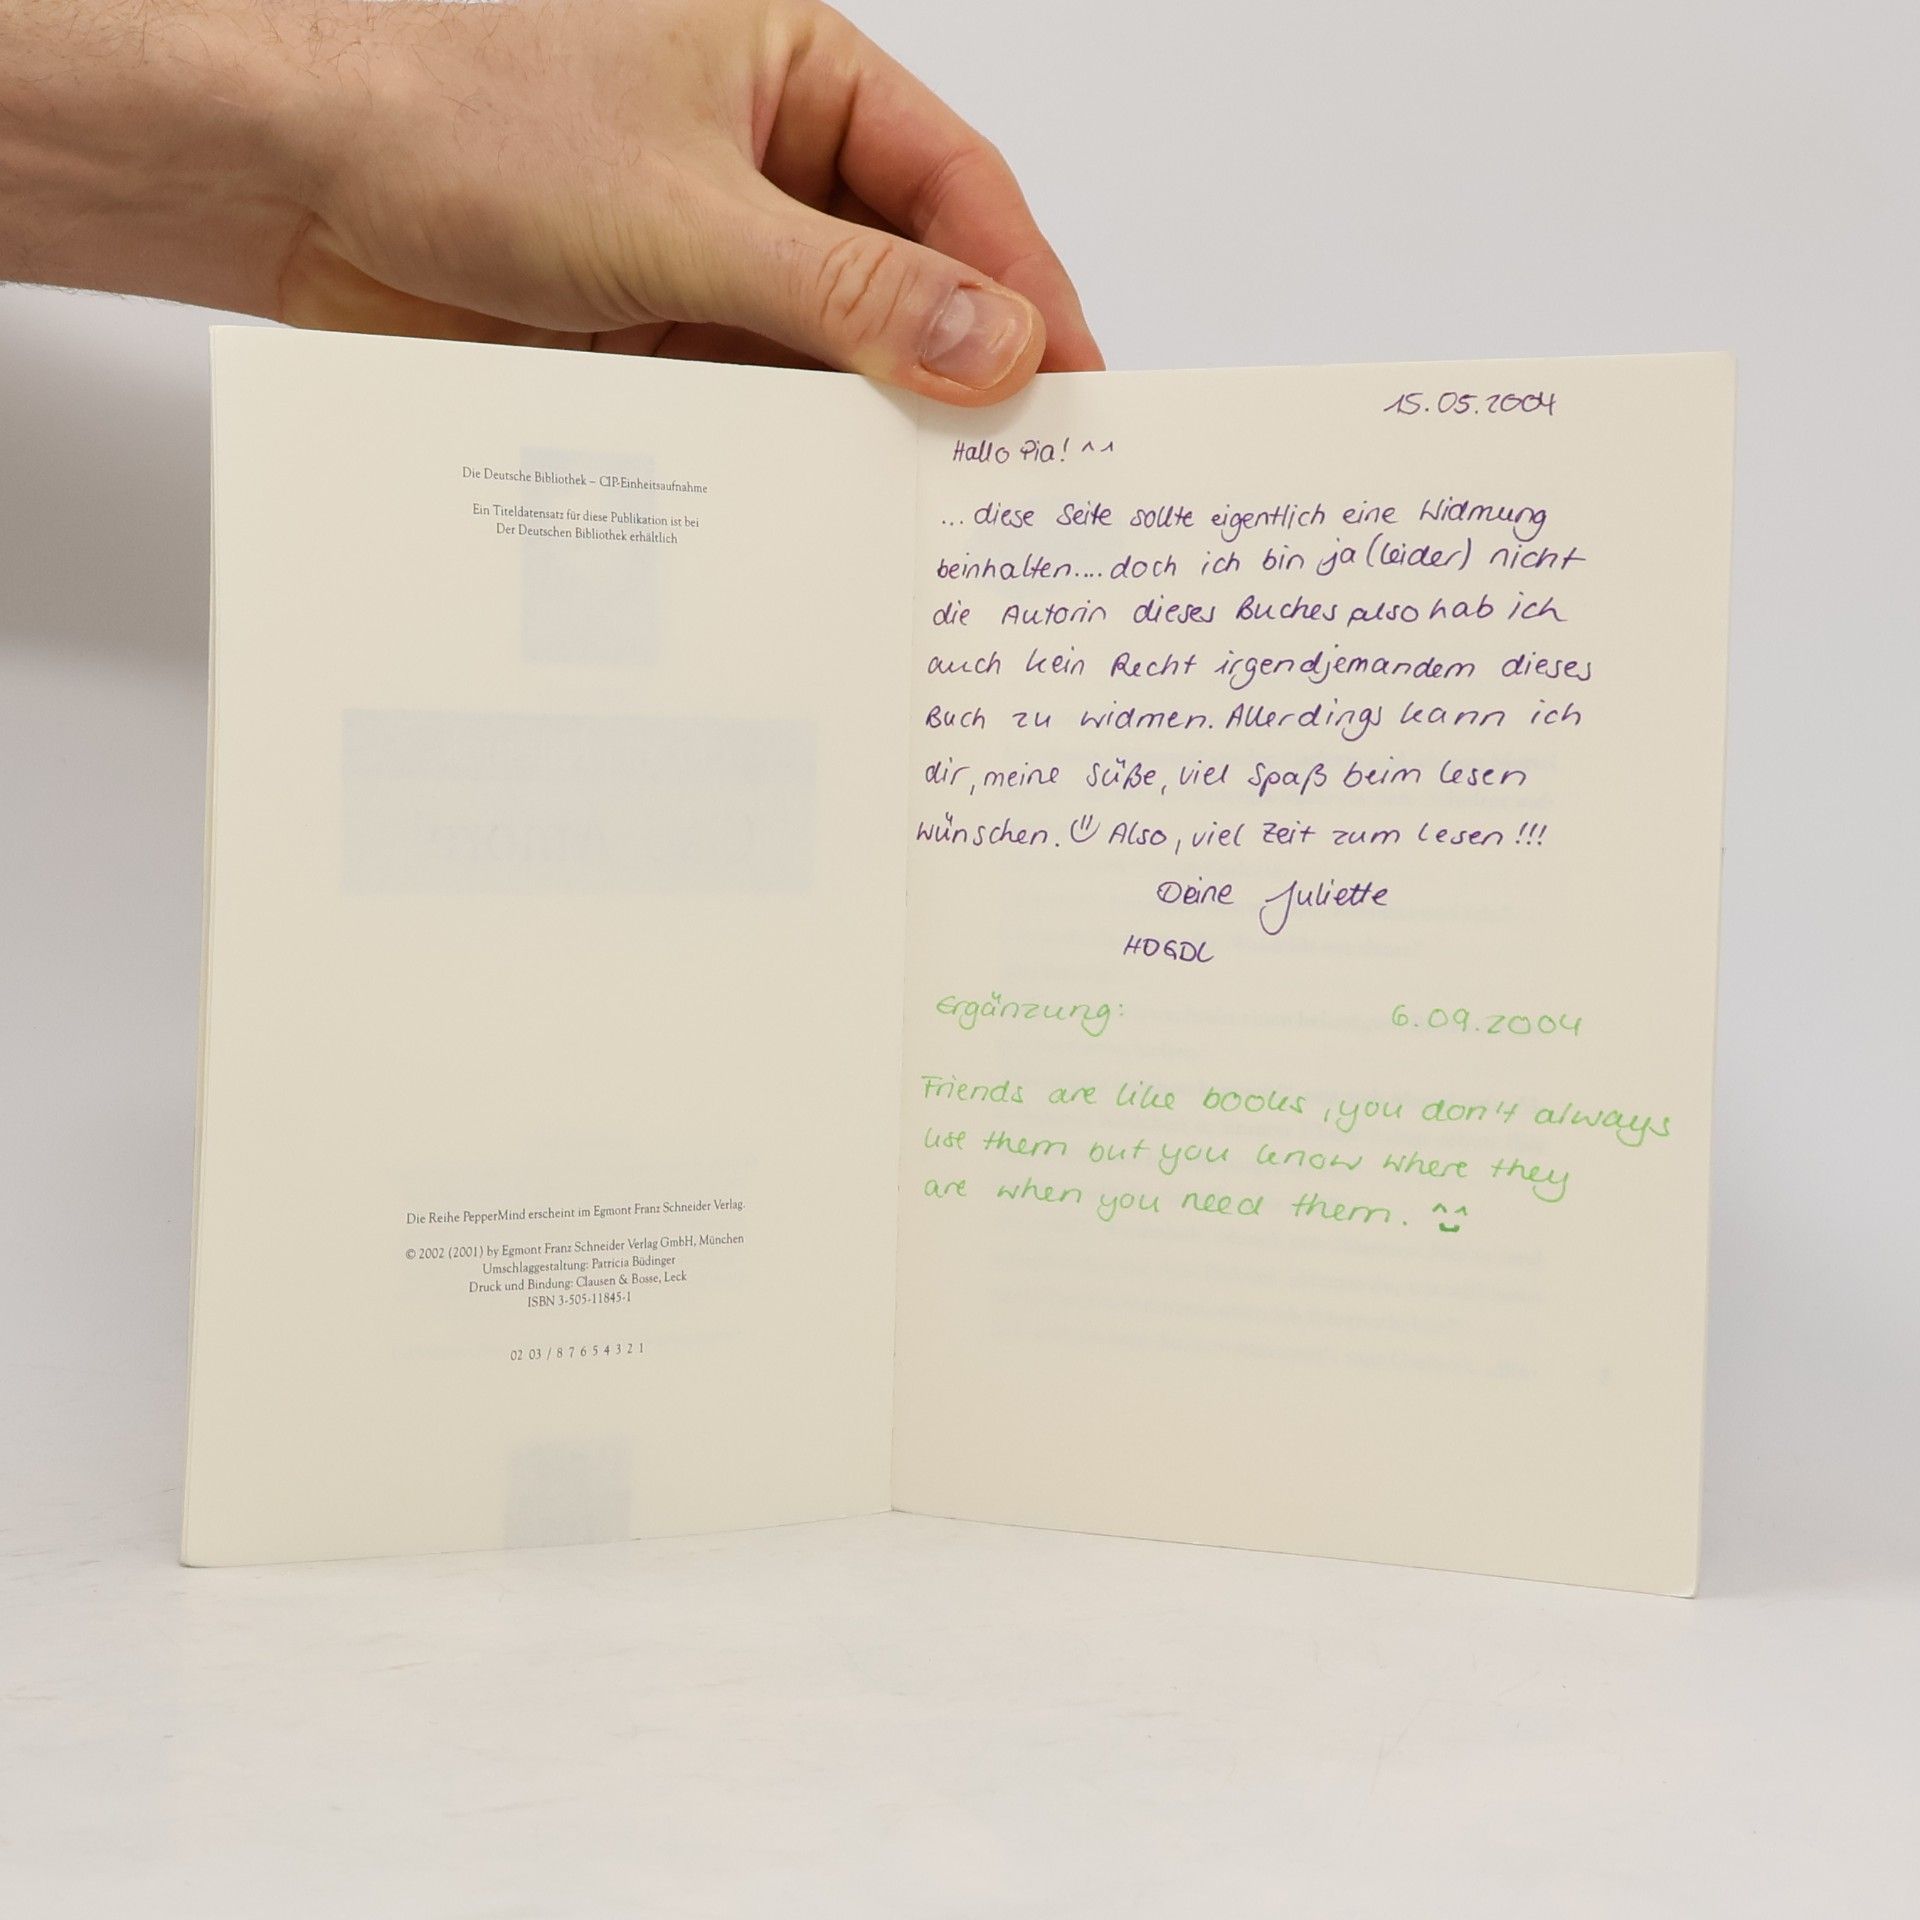 Die Deutsche Bibliothek – CIP-Einheitsaufnahme
Ein Titeldatensatz für diese Publikation ist bei
Der Deutschen Bibliothek erhältlich
Die Reihe PepperMind erscheint im Egmont Franz Schneider Verlag.
© 2002 (2001) by Egmont Franz Schneider Verlag GmbH, München
Umschlaggestaltung: Patricia Büdinger
Druck und Bindung: Clausen & Bosse, Leck
ISBN 3-505-11845-1
02 03 / 8 7 6 5 4 3 2 1
15.05.2004
Hallo Pia! ^^
... diese Seite sollte eigentlich eine Widmung
beinhalten.... doch ich bin ja (leider) nicht
die Autorin dieses Buches also hab ich
auch kein Recht irgendjemandem dieses
Buch zu widmen. Allerdings kann ich
dir, meine Süße, viel Spaß beim Lesen
wünschen. Also, viel Zeit zum Lesen!!!
Deine Juliette
HDGDL
Ergänzung: 6.09.2004
Friends are like books, you don't always
use them but you know where they
are when you need them. ^^